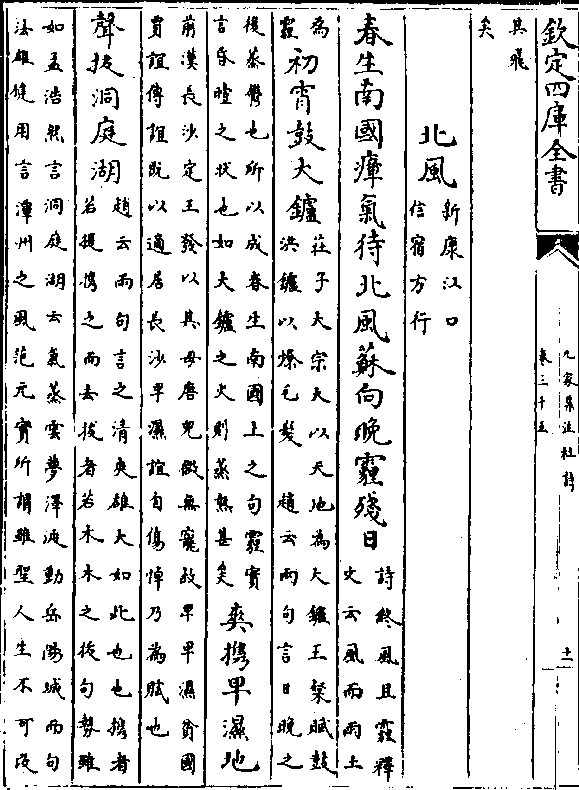 欽定四庫全書
九家集注杜詩
卷三十五
十一
其飛
矣
北風
新康江口
信宿方行
春生南國瘴氣待北風蘇向晚霾殘日
詩終風且霾釋
文云風而雨土
為
霾
初宵鼓大鑪
莊子大宗夫以天地為大鑪王粲賦鼓
洪鑪以燎毛髮 趙云兩句言日晚之
後蒸鬱也所以成春生南國上之句霾實
言昏曀之狀也如大鑪之火則蒸熱甚矣
爽攜卑濕地
前漢長沙定王發以其母唐兒微無寵故卑卑濕貧國
賈誼傳誼既以適居長沙卑濕誼自傷悼乃為賦也
聲拔洞庭湖
趙云兩句言之清爽雄大如此也也攜者
若提攜之而去拔者若木木之拔句勢雖
如孟浩然言洞庭湖云氣蒸雲夢澤波動岳陽城而句
法雄健用言潭州之風范元實所謂雖聖人生不可改